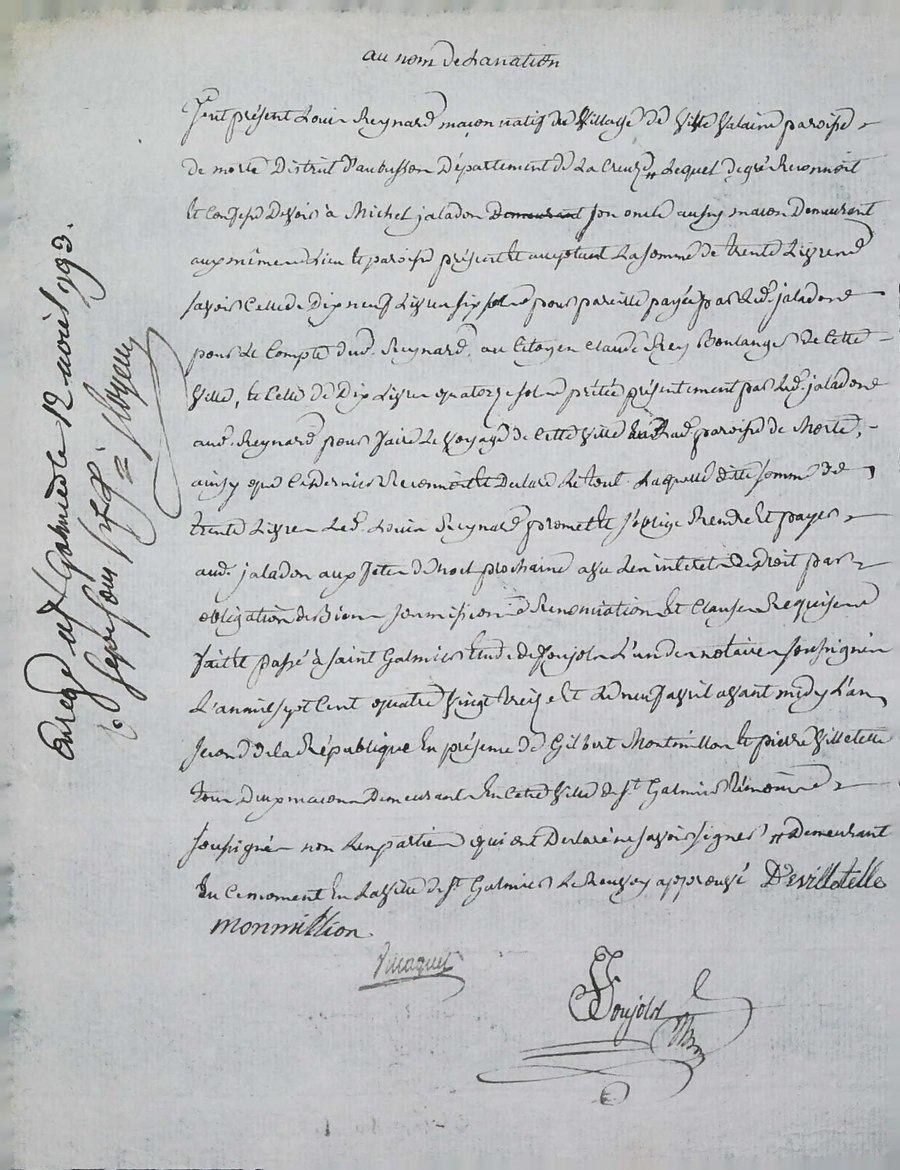 au nom de la nation
fut présent Louis Reynard maçon natif du village de Ville Valaine paroisse
de morte District d'aubusson Département de La Creuze // Lequel de gré Reconnoit
et Confesse Devoir à Michel jaladon demeurant son oncle aussy macon Demeurant
aux même Lieu et paroisse présent et acceptant La somme de trente Livres
savoir Celle de Dix neuf Livres six sols pour pareille payée par led. jaladon
pour Le Compte dud. Reynard, au Citoyen Claude Rey Boulanger de Cette
Ville, et Celle de Dix Livres quatorze sols prêtée présentement par Led. jaladon
aud. Reynard pour faire Le Voyage de Cette Ville aud. paroisse de Morte,
ainsy que Ce Dernier Reconnoit et Declare Le tout. Laquelle ditte somme de
trente Livres Led. Louis Reynard promet et s'oblige Rendre et payer
aud. jaladon aux fetes de Noel prochaine avec Les interets de Droit par
obligation de Biens soumission Renonciation et Clauses Requises
fait et passé à saint Galmier Etude de Poujols L'un des notaires soussignés
L'an mil sept Cent quatre vingt treize et Le neuf avril avant midy L'an
second de la République En présence de Gilbert Montmillon et pierre Villetelle
tous Deux macons Demeurants En Cette Ville de St. Galmier Témoins
soussignés non Les parties qui ont Declaré ne savoir signer // Demeurant
En Ce moment En La Ville de St. Galmier Le Renvoy approuvé Devilletelle
monmillion
Poujols
Enregé à St Galmier le 12 avril 1793.